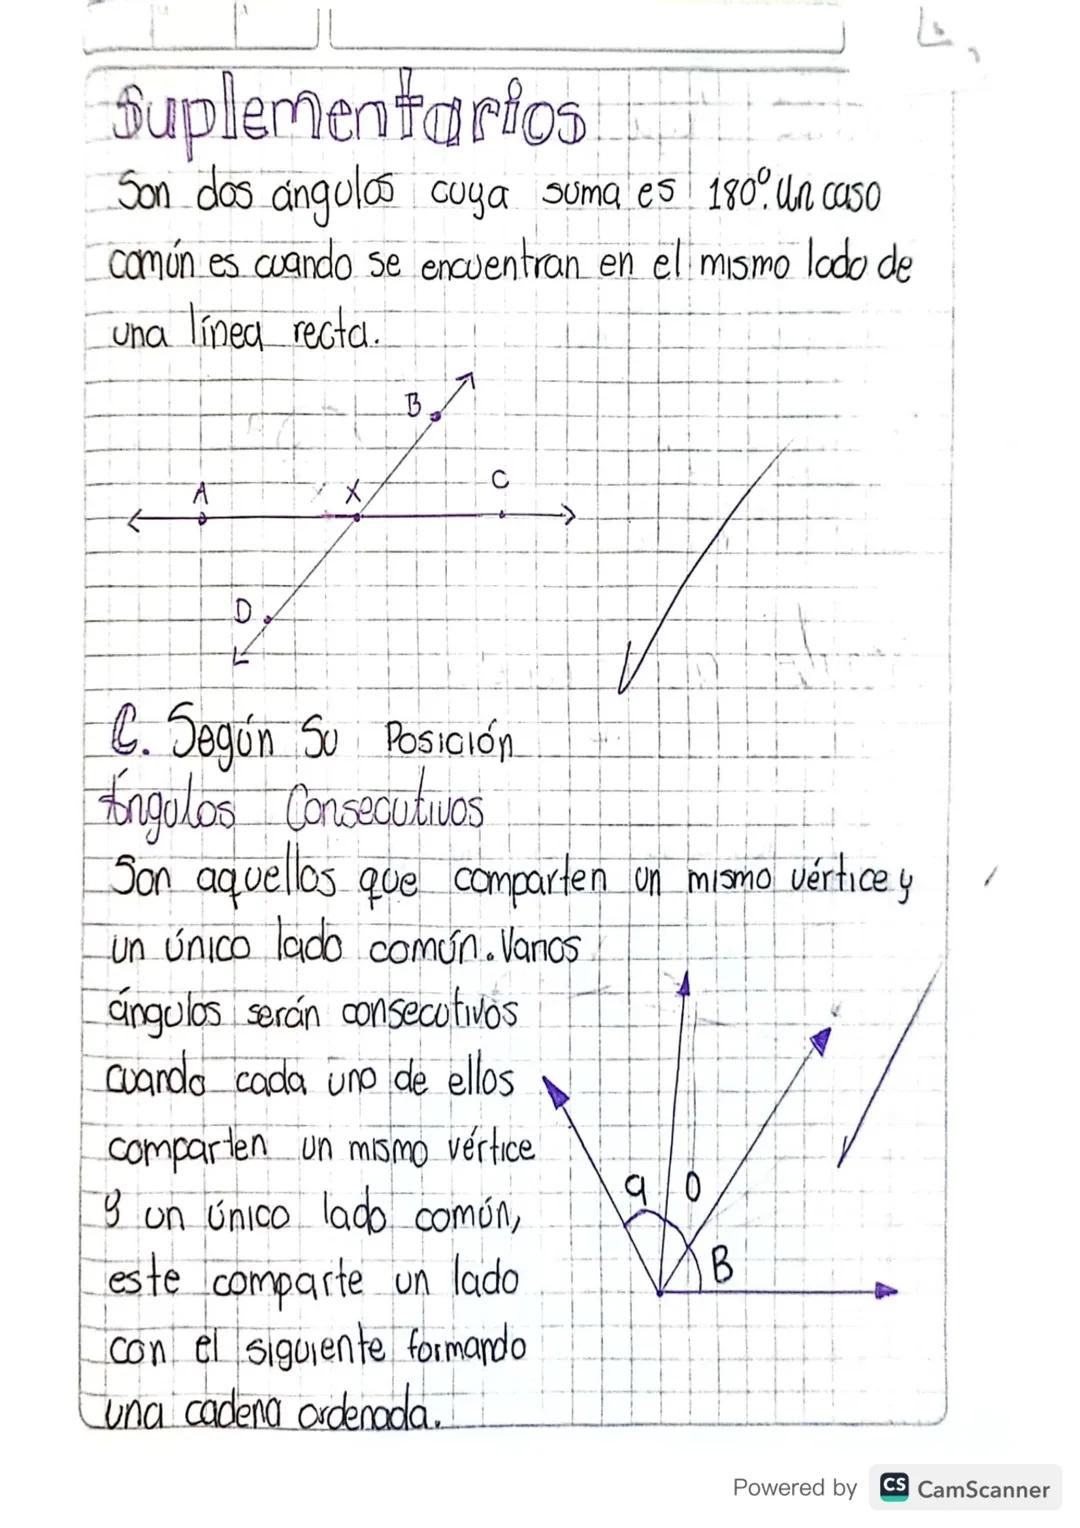 Suplementarios
Son dos ángulos cuya suma es 180º. Un caso
común es cuando se encuentran en el mismo lado de
una línea recta.
B
A
X
C
D
C. Según Su Posición
Ángulos Consecutivos
Son aquellos que comparten un mismo vértice y
un único lado común. Varios
ángulos serán consecutivos
cuando cada uno de ellos
comparten un mismo vértice
y un único lado común,
este comparte un lado
con el siguiente formando
una cadena ordenada.
a 0
B
Powered by CS CamScanner